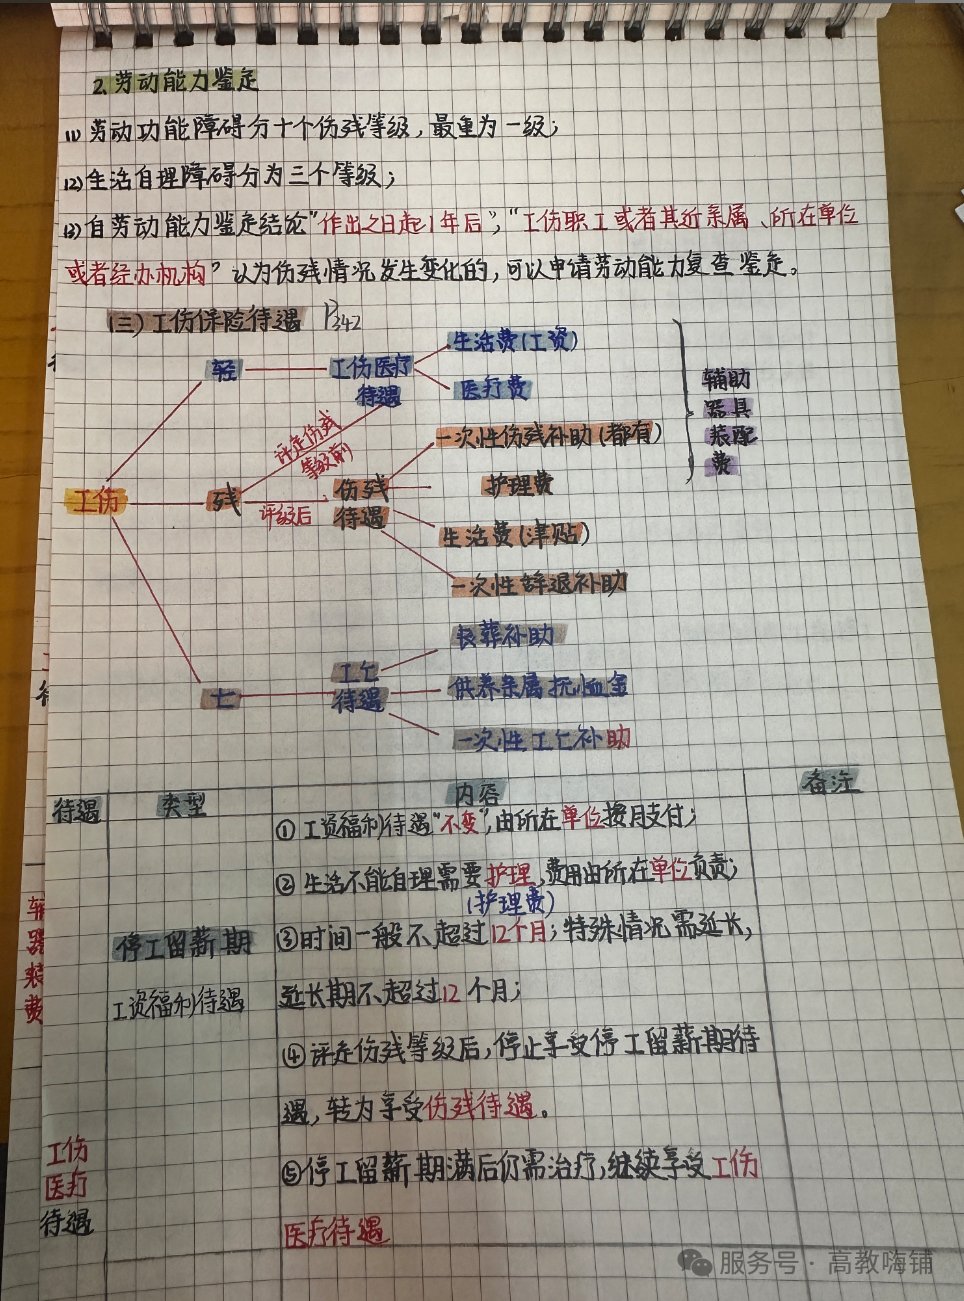 2.劳动能力鉴定
(1)劳动功能障碍分十个伤残等级,最重为一级;
(2)生活自理障碍分为三个等级;
(3)自劳动能力鉴定结论"作出之日起1年后","工伤职工或者其近亲属、所在单位
或者经办机构"认为伤残情况发生变化的,可以申请劳动能力复查鉴定。
(三)工伤保险待遇 P342
轻
工伤医疗
待遇
生活费(工资)
医疗费
辅助
器具
装配
费
工伤
残
评定伤残
等级前
评级后
伤残
待遇
一次性伤残补助(都有)
护理费
生活费(津贴)
一次性辞退补助
亡
工亡
待遇
丧葬补助
供养亲属抚恤金
一次性工亡补助
待遇 类型 内容 备注
①工资福利待遇"不变",由所在单位按月支付;
②生活不能自理需要护理,费用由所在单位负责;
(护理费)
停工留薪期
工资福利待遇
③时间一般不超过12个月;特殊情况需延长,
延长期不超过12个月;
④评定伤残等级后,停止享受停工留薪期待
遇,转为享受伤残待遇。
⑤停工留薪期满后仍需治疗,继续享受工伤
医疗待遇
工伤
医疗
待遇
器
装
费
服务号·高教嗨铺